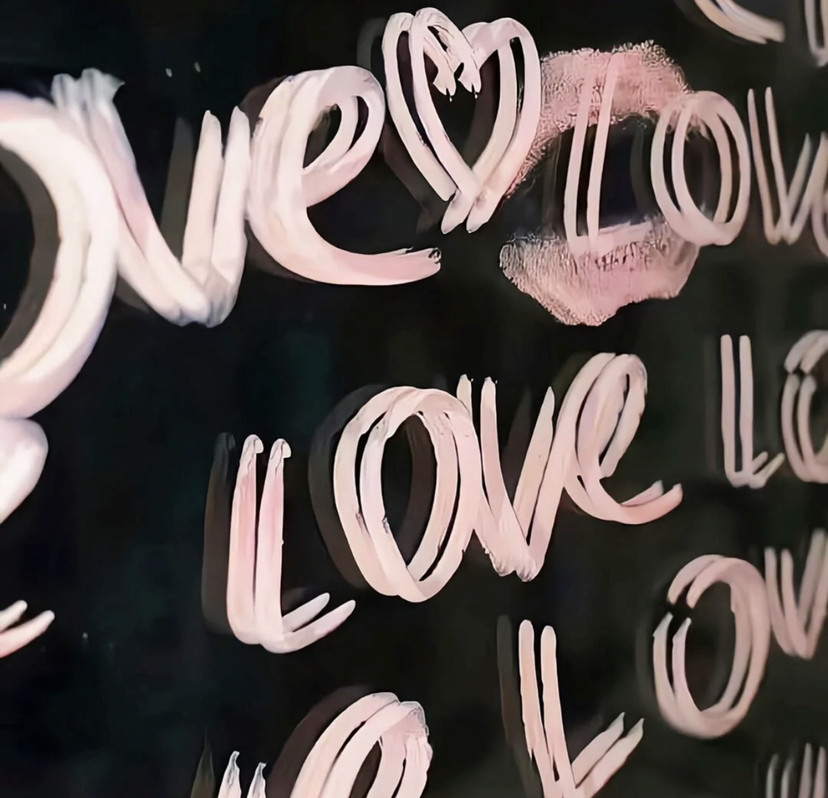 ove♡ Lov
Love Lo
L Ov